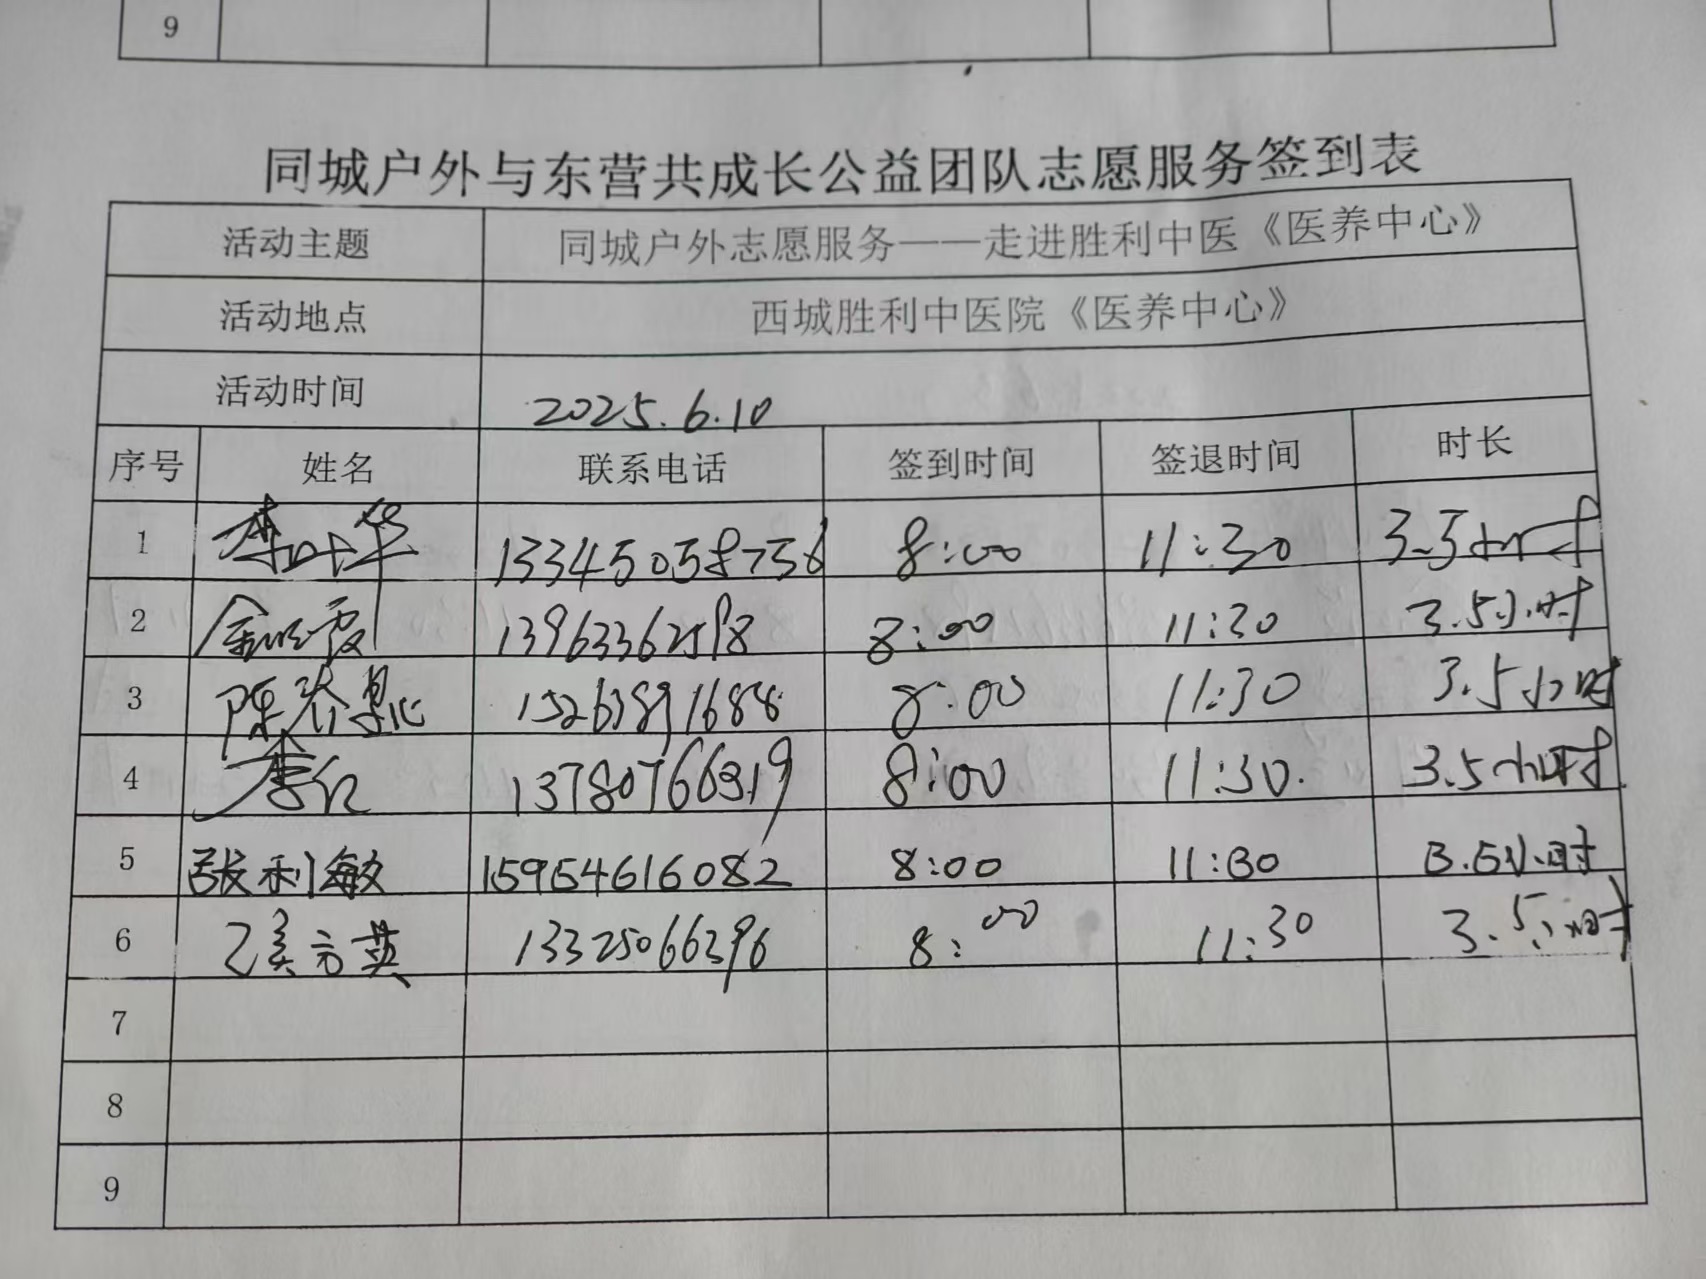 9
同城户外与东营共成长公益团队志愿服务签到表
活动主题 同城户外志愿服务——走进胜利中医《医养中心》
活动地点 西城胜利中医院《医养中心》
活动时间 2025.6.10
序号 姓名 联系电话 签到时间 签退时间 时长
1 李叶华 13345058756 8:00 11:30 3.5小时
2 8:00 11:30 3.5小时
3 陈春 15263891688 8:00 11:30 3.5小时
4 李红 13780766319 8:00 11:30. 3.5小时
5 张利敏 15954616082 8:00 11:30 3.5小时
6 13325066296 8:00 11:30 3.5小时
7
8
9